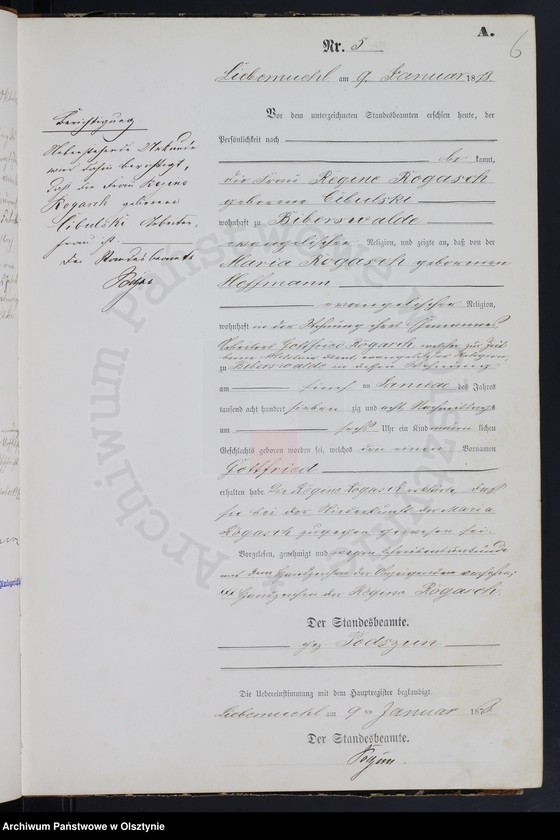 A.
6
Nr. 5
Liebemuehl am 9. Januar 1878
Vor dem unterzeichneten Standesbeamten erschien heute, der
Persönlichkeit nach
be kannt,
die Frau Regine Rogasch
geborene Cibulski
wohnhaft zu Biberswalde
evangelischer Religion, und zeigte an, daß von der
Maria Rogasch geborenen
Hoffmann
evangelischer Religion,
wohnhaft in der Wohnung ihres Ehemannes
Gottfried Rogasch welcher zur Zeit
beim Militair dient, evangelischer Religion,
zu Biberswalde in dessen Wohnung
am fünf ten Januar des Jahres
tausend acht hundert sieben zig und acht Nachmittags
um sechs Uhr ein Kind männ lichen
Geschlechts geboren worden sei, welches den einen Vornamen
Gottfried
erhalten habe. Die Regine Rogasch erklärte, daß
sie bei der Niederkunft der Maria
Rogasch zugegen gewesen sei.
Vorgelesen, genehmigt und wegen Schreibensunkunde
mit dem Handzeichen der Anzeigenden versehen
xxx Handzeichen der Regine Rogasch.
Der Standesbeamte.
gez Podszun
Die Uebereinstimmung mit dem Hauptregister beglaubigt.
Liebemuehl am 9 ten Januar 1878
Der Standesbeamte.
Berichtigung
Nebenstehende Urkunde
wird dahin berichtigt,
daß die Frau Regine
Rogasch geborene
Cibulski Arbeiter-
frau ist.
Der Standesbeamte
Archiwum Państwowe w Olsztynie
Archiwum Państwowe w Olsztynie